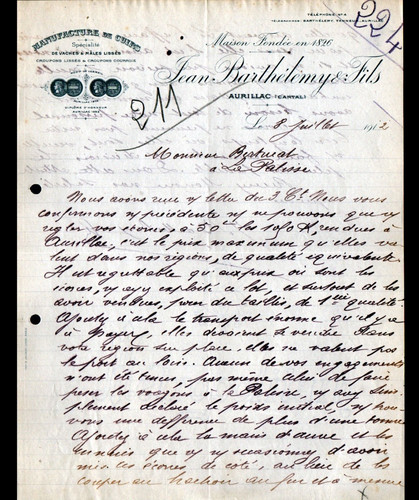 TÉLÉPHONE Nº 4
TÉLÉGRAMMES: BARTHÉLEMY, TANNEUR, AURILLAC
224
MANUFACTURE DE CUIRS
Spécialité
DE VACHES & MÂLES LISSÉS
CROUPONS LISSÉS & CROUPONS COURROIE
Maison Fondée en 1826
Jean Barthélemy & Fils
AURILLAC (CANTAL)
211
Le 8 Juillet 1912
Monsieur
à La Palisse
Nous avons reçu v/ lettre du 3 Ct. Nous vous
confirmons n/ précédente n/ ne pouvons que v/
régler vos écorces à 50 les 1010 K, rendues à
Aurillac, c'est le prix maximum qu'elles va-
lent dans nos régions, de qualité équivalente.
Il est regrettable qu'aux prix où sont les
écorces, v/ ayez exploité ce lot, et surtout de les
avoir vendues, pour du taillis, de 1ère qualité.
Ajoutez à cela le transport énorme qu'il y a
à payer, elles devaient se vendre dans
votre région sur place, elles ne valent pas
le port au loin. Aucun de vos engagements
n'ont été tenus, pas même celui de faire
peser les wagons à La Palisse, v/ avez sim-
plement déclaré le poids initial, n/ trou-
vons une différence de plus d'une tonne
Ajoutez à cela la main d'œuvre et les
ennuis que v/ n/ occasionnez d'avoir
mis les écorces de côté, au lieu de les
couper au hachoir au fur et à mesure